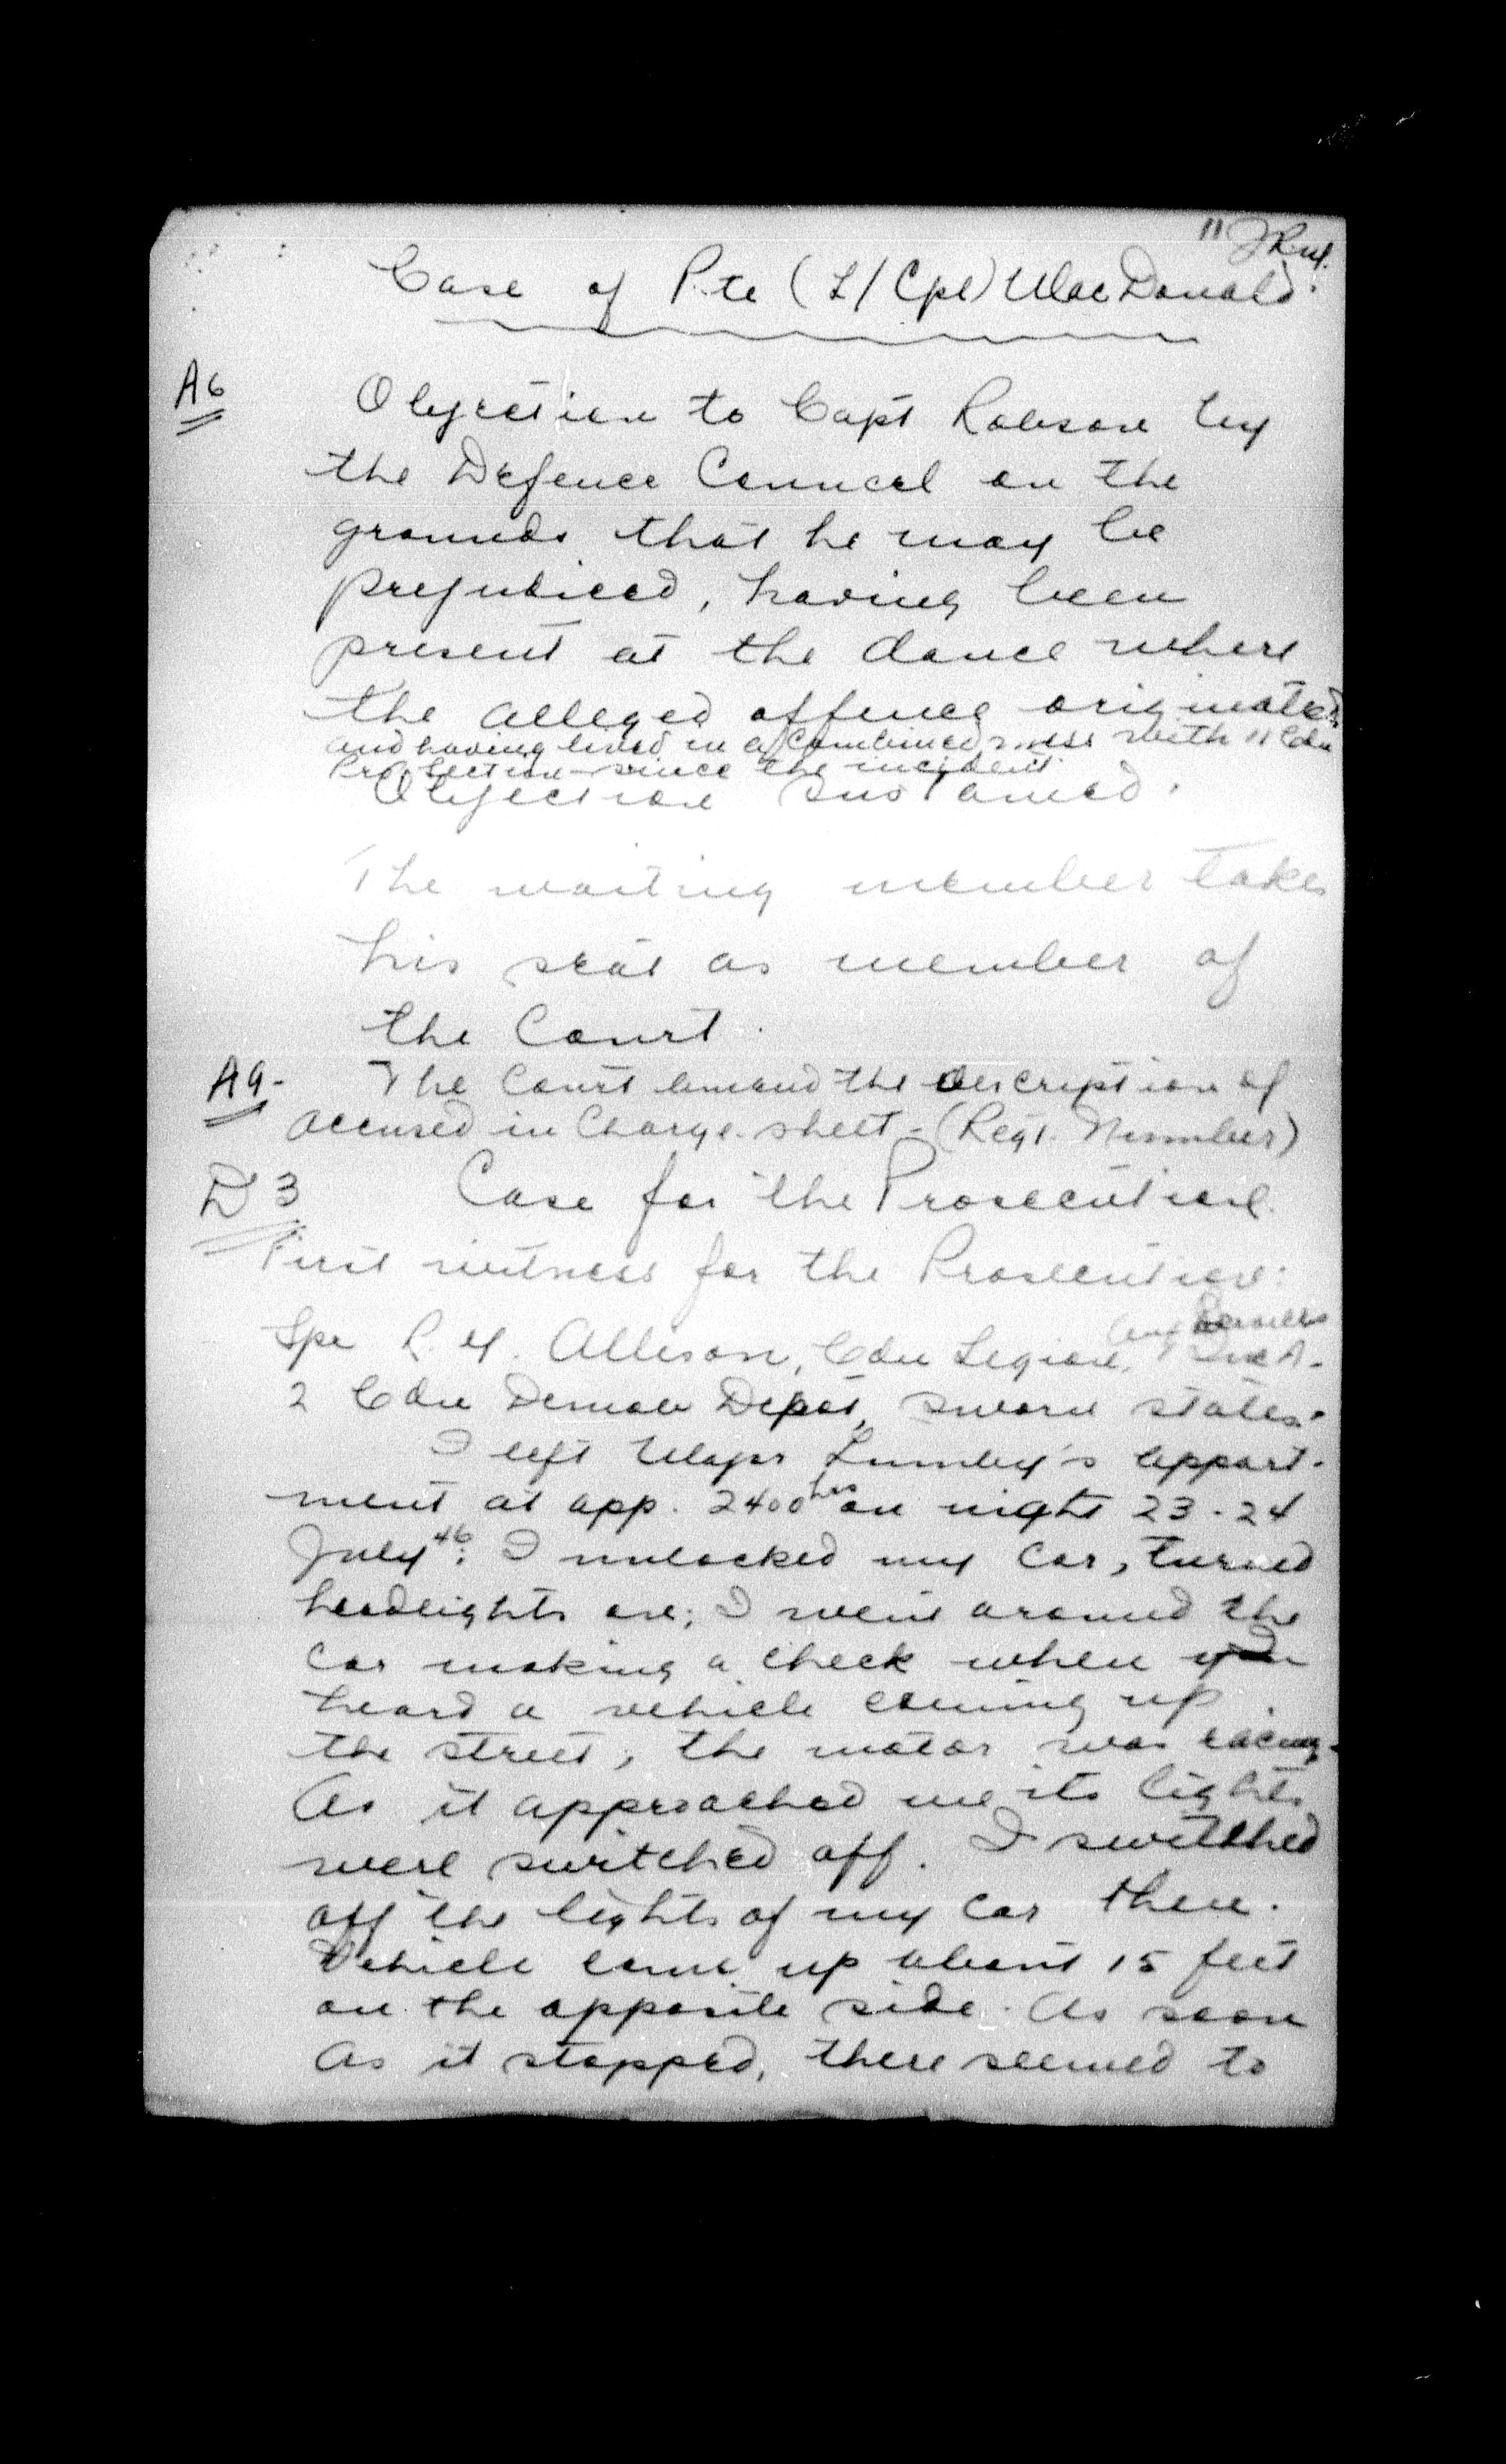 11
Case of Pte (L/Cpl) MacDonald.
A6
Objection to Capt Robson by
the Defence Councel on the
grounds that he may be
prejudiced, having been
present at the dance where
the alleged offence originated
and having lived in a combined mess with 11 Cdn
since the incident.
Objection sustained.
The waiting member takes
his seat as member of
the Court.
A9-
The Court amend the description of
accused in Charge-sheet - (Regt. Number)
D3
Case for the Prosecution.
First witness for the Prosecution:
Spr R. H. Allison, Cdn Legion,
2 Cdn Demob Depot, sworn states:
I left Major Lumley's appart-
ment at app. 2400 hrs on night 23-24
July 46; I unlocked my car, turned
headlights on; I went around the
car making a check when I
heard a vehicle coming up
the street, the motor was racing.
As it approached me its lights
were switched off. I switched
off the lights of my car then.
Vehicle came up about 15 feet
on the opposite side. As soon
As it stopped, there seemed to